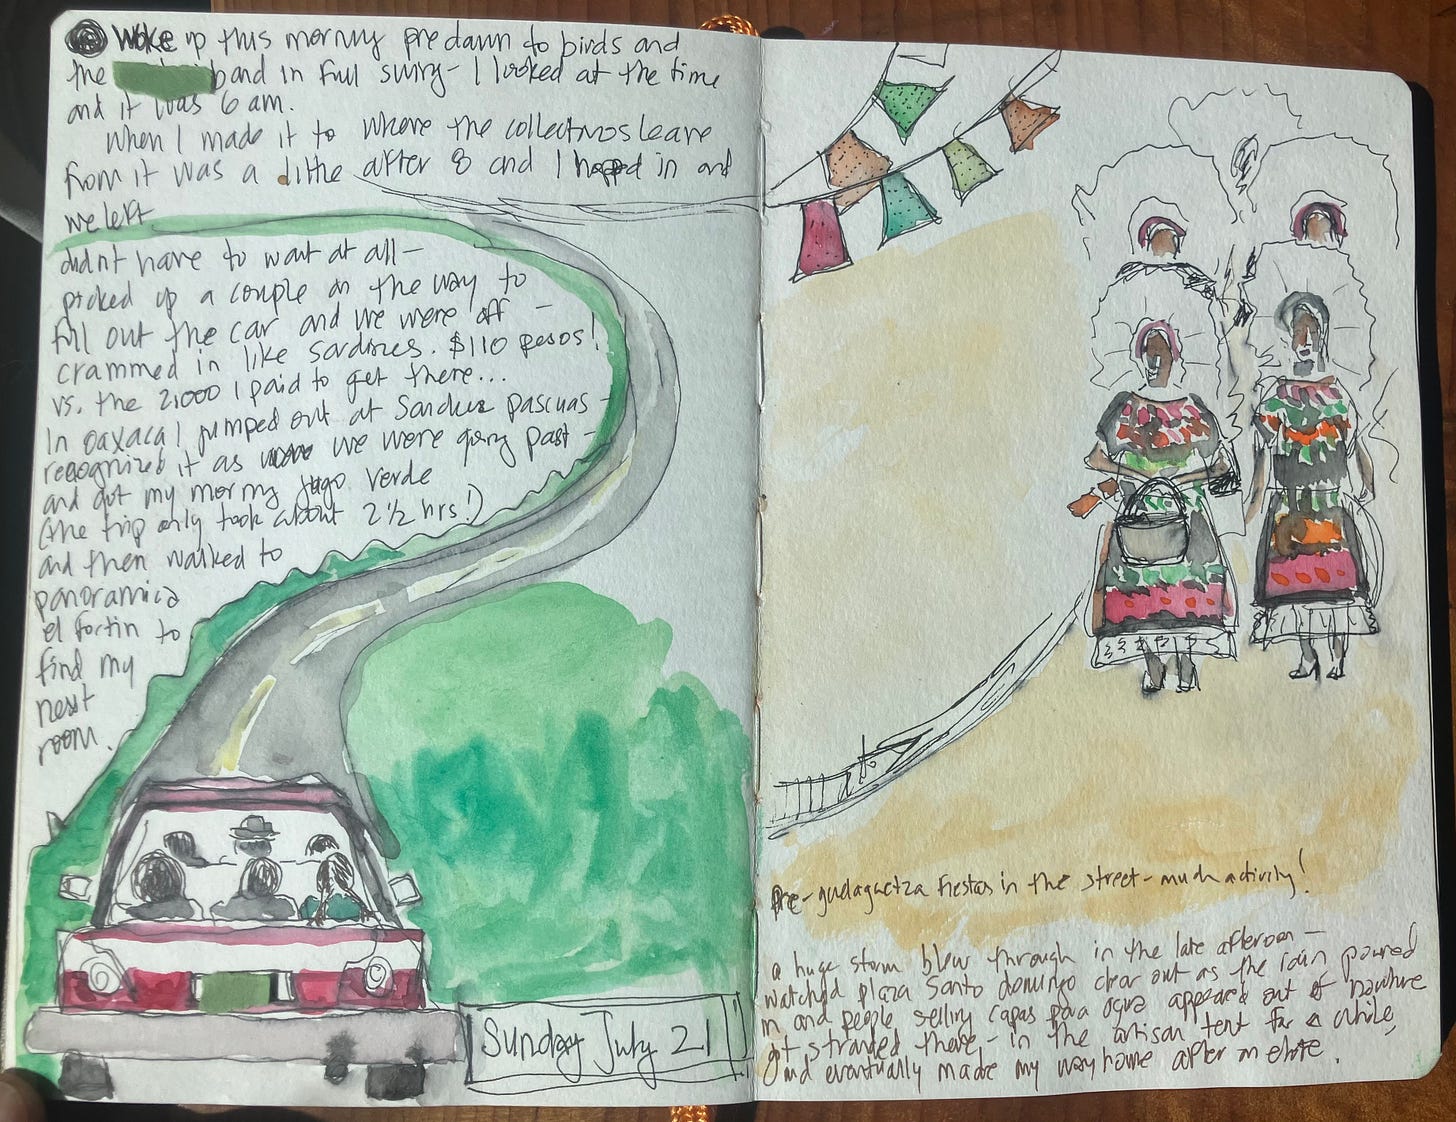 Woke up this morning predawn to birds and
the band in full swing - I looked at the time
and it was 6 am.
When I made it to where the collectivos leave
from it was a little after 8 and I hopped in and
we left
didnt have to wait at all -
picked up a couple on the way to
fill out the car and we were off -
crammed in like sardines. $110 pesos!
vs. the 2,000 I paid to get there...
In oaxaca I jumped out at Sanchez pascuas -
recognized it as we were going past -
and got my morning jugo verde
(the trip only took about 2 1/2 hrs!)
and then walked to
panoramica
el fortin to
find my
next
room.
Sunday July 21
Pre-guelaguetza fiestas in the street - much activity!
a huge storm blew through in the late afternoon -
watched plaza Santo domingo clear out as the rain poured
in and people selling capas para agua appeared out of nowhere
got stranded there - in the artisan tent for a while,
and eventually made my way home after an elote.